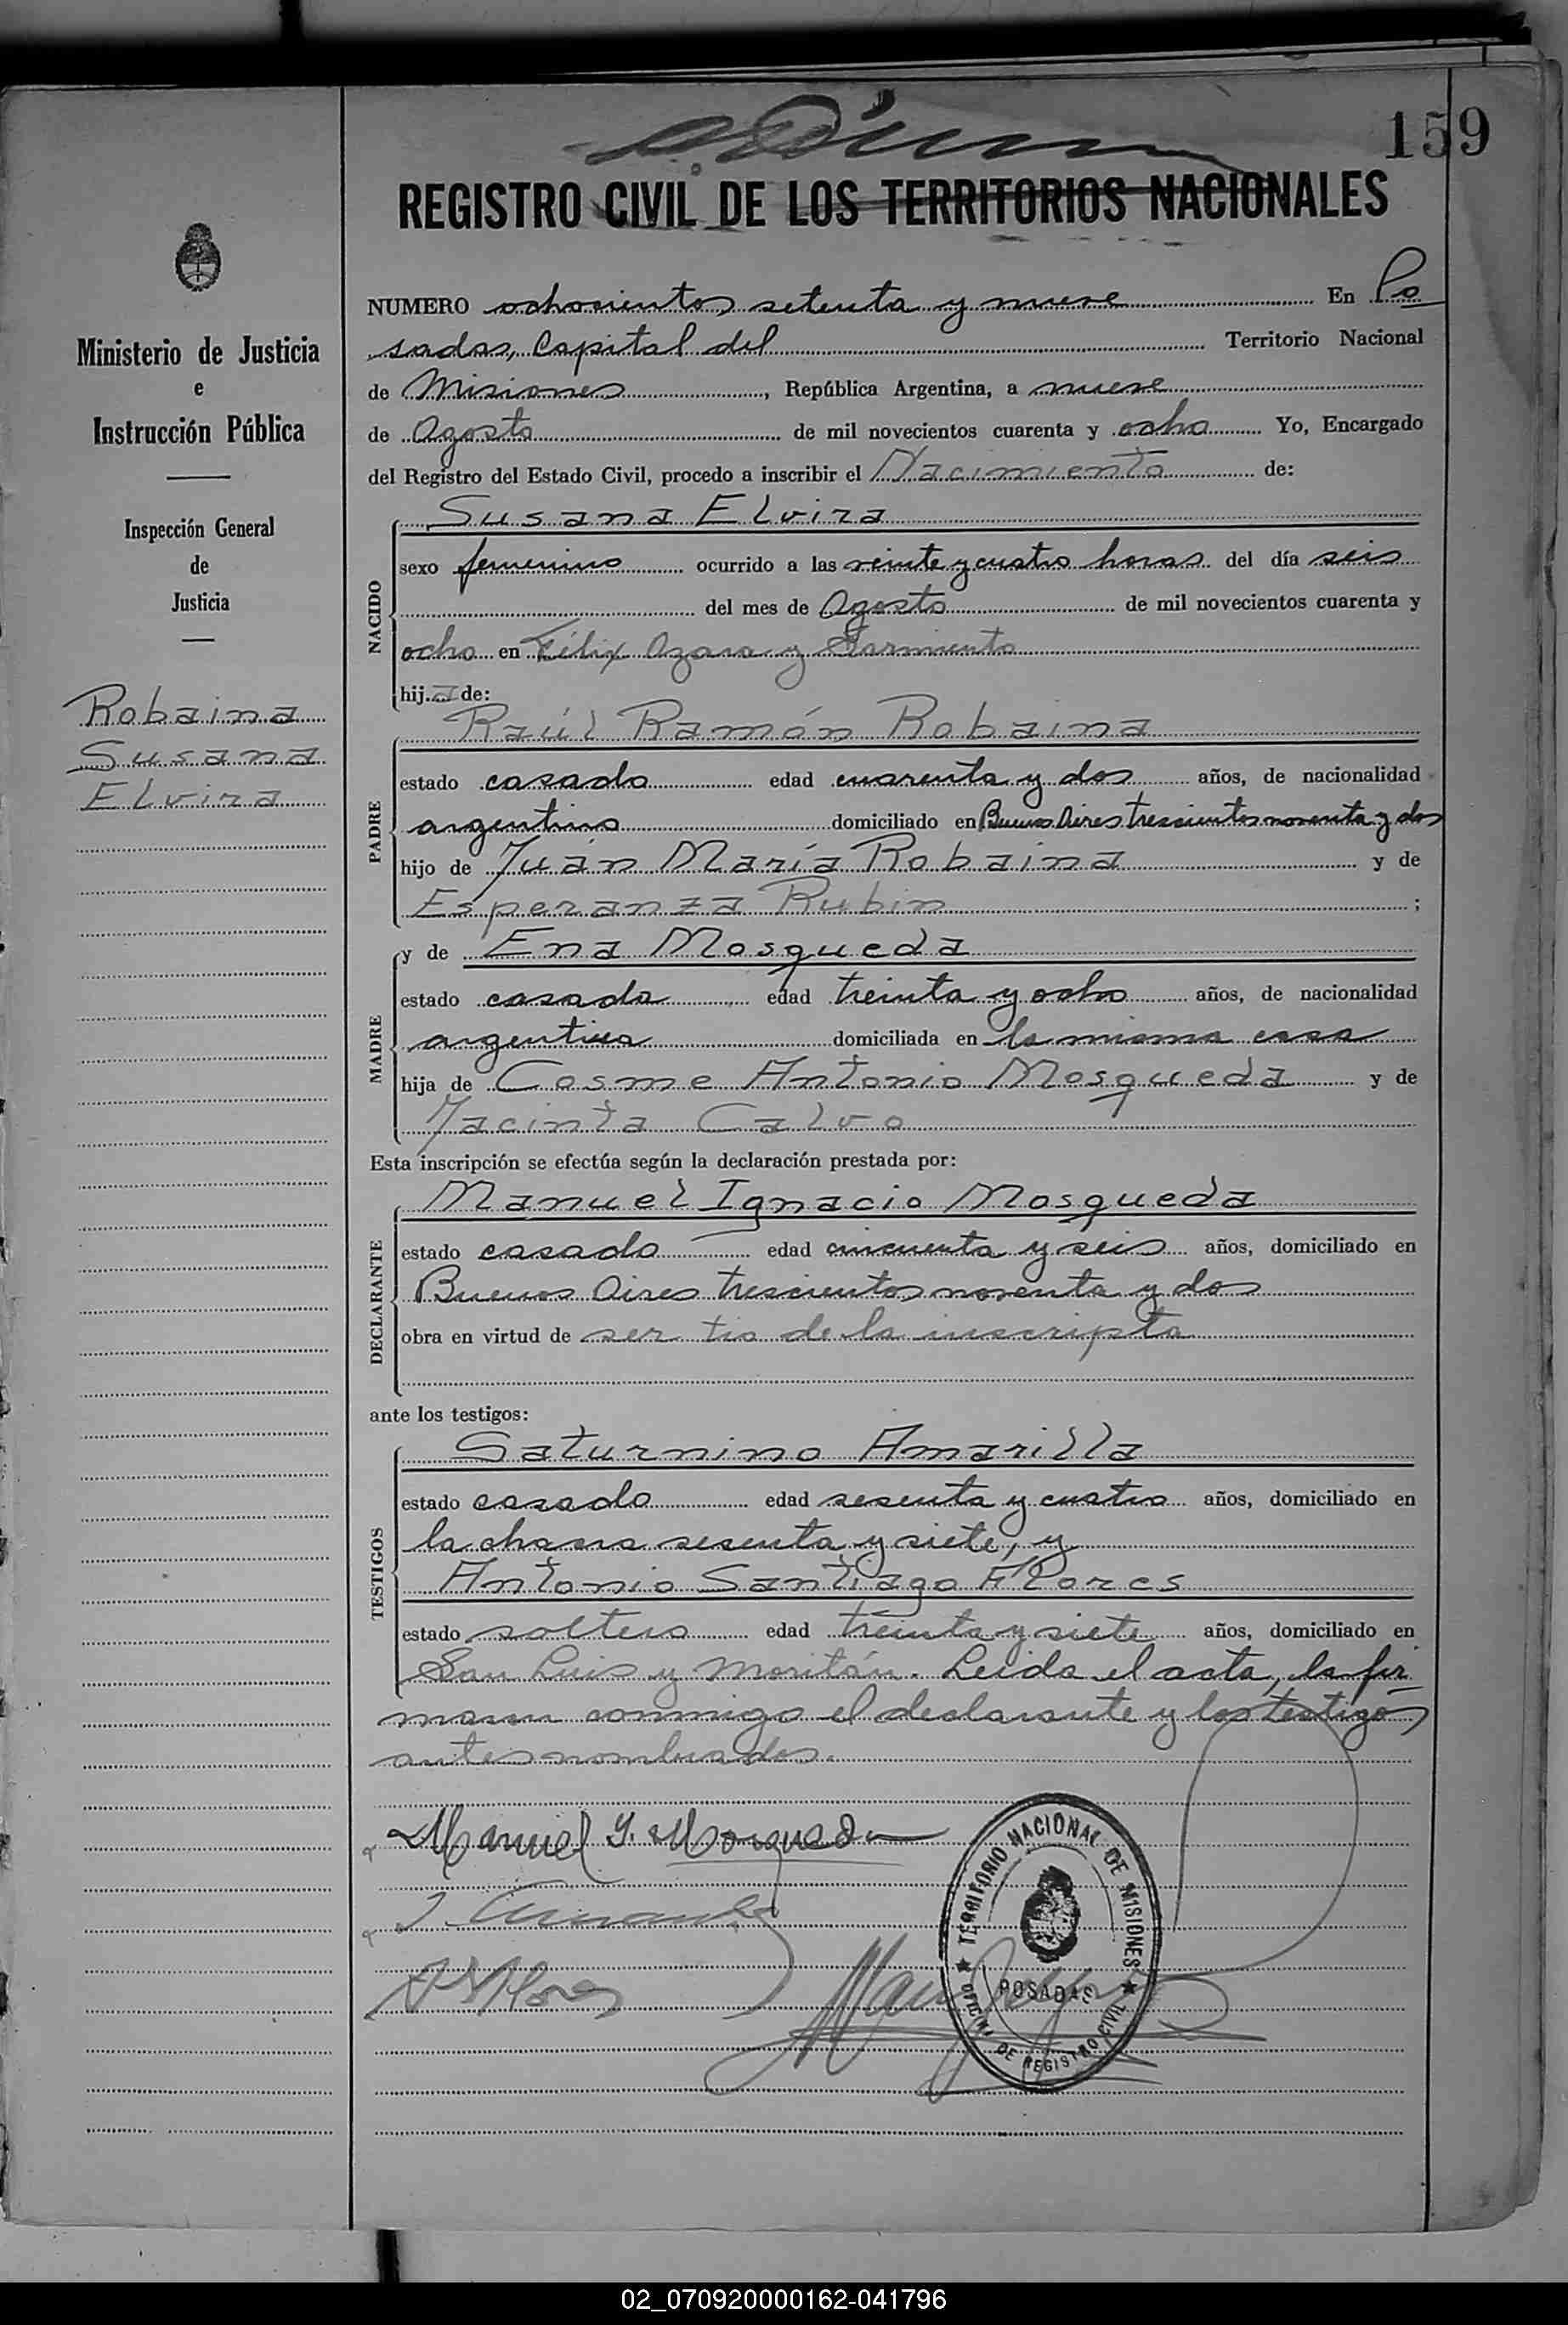 159
REGISTRO CIVIL DE LOS TERRITORIOS NACIONALES
Ministerio de Justicia
e
Instrucción Pública
Inspección General
de
Justicia
Robaina
Susana
Elvira
NUMERO ochocientos setenta y nueve En Po
sadas, Capital del Territorio Nacional
de Misiones, República Argentina, a nueve
de Agosto de mil novecientos cuarenta y ocho Yo, Encargado
del Registro del Estado Civil, procedo a inscribir el Nacimiento de:
NACIDO
Susana Elvira
sexo femenino ocurrido a las veinte y cuatro horas del día seis
del mes de Agosto de mil novecientos cuarenta y
ocho en Félix Azara y Sarmiento
hija de:
PADRE
Raúl Ramón Robaina
estado casado edad cuarenta y dos años, de nacionalidad
argentino domiciliado en Buenos Aires trescientos noventa y dos
hijo de Juán María Robaina y de
Esperanza Rubin ;
MADRE
y de Ena Mosqueda
estado casada edad treinta y ocho años, de nacionalidad
argentina domiciliada en la misma casa
hija de Cosme Antonio Mosqueda y de
Jacinta Calvo
Esta inscripción se efectúa según la declaración prestada por:
DECLARANTE
Manuel Ignacio Mosqueda
estado casado edad cincuenta y seis años, domiciliado en
Buenos Aires trescientos noventa y dos
obra en virtud de ser tio de la inscripta
ante los testigos:
TESTIGOS
Saturnino Amarilla
estado casado edad sesenta y cuatro años, domiciliado en
la chacra sesenta y siete, y
Antonio Santiago Flores
estado soltero edad treinta y siete años, domiciliado en
San Luis y Moritán. Leida el acta, la fir
maron conmigo el declarante y los testigos
antes nombrados.
Manuel I. Mosqueda
A S Flores
TERRITORIO NACIONAL DE MISIONES
POSADAS
OFICINA DE REGISTRO CIVIL
02_070920000162-041796